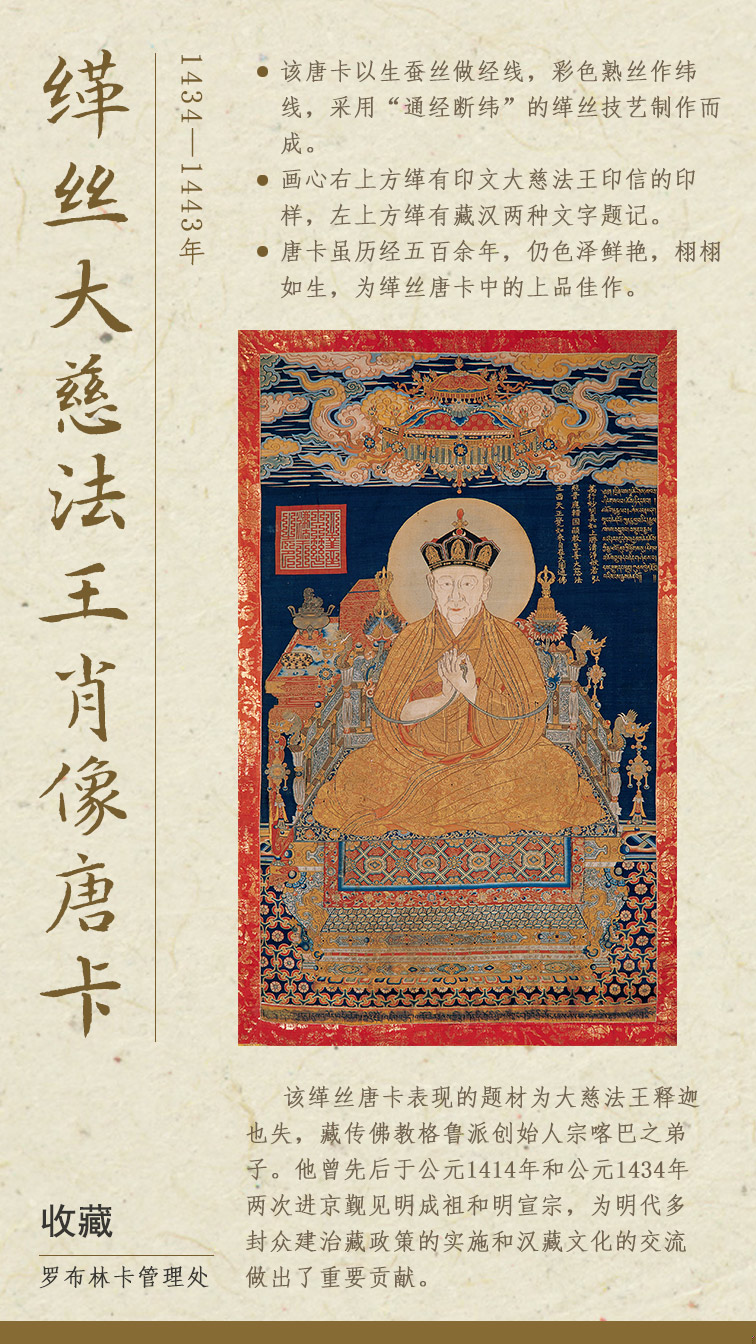 缂丝大慈法王肖像唐卡
1434—1443年
●该唐卡以生蚕丝做经线，彩色熟丝作纬
线，采用“通经断纬”的缂丝技艺制作而
成。
●画心右上方缂有印文大慈法王印信的印
样，左上方缂有藏汉两种文字题记。
●唐卡虽历经五百余年，仍色泽鲜艳，栩栩
如生，为缂丝唐卡中的上品佳作。
该缂丝唐卡表现的题材为大慈法王释迦
也失，藏传佛教格鲁派创始人宗喀巴之弟
子。他曾先后于公元1414年和公元1434年
两次进京觐见明成祖和明宣宗，为明代多
封众建治藏政策的实施和汉藏文化的交流
做出了重要贡献。
收藏
罗布林卡管理处